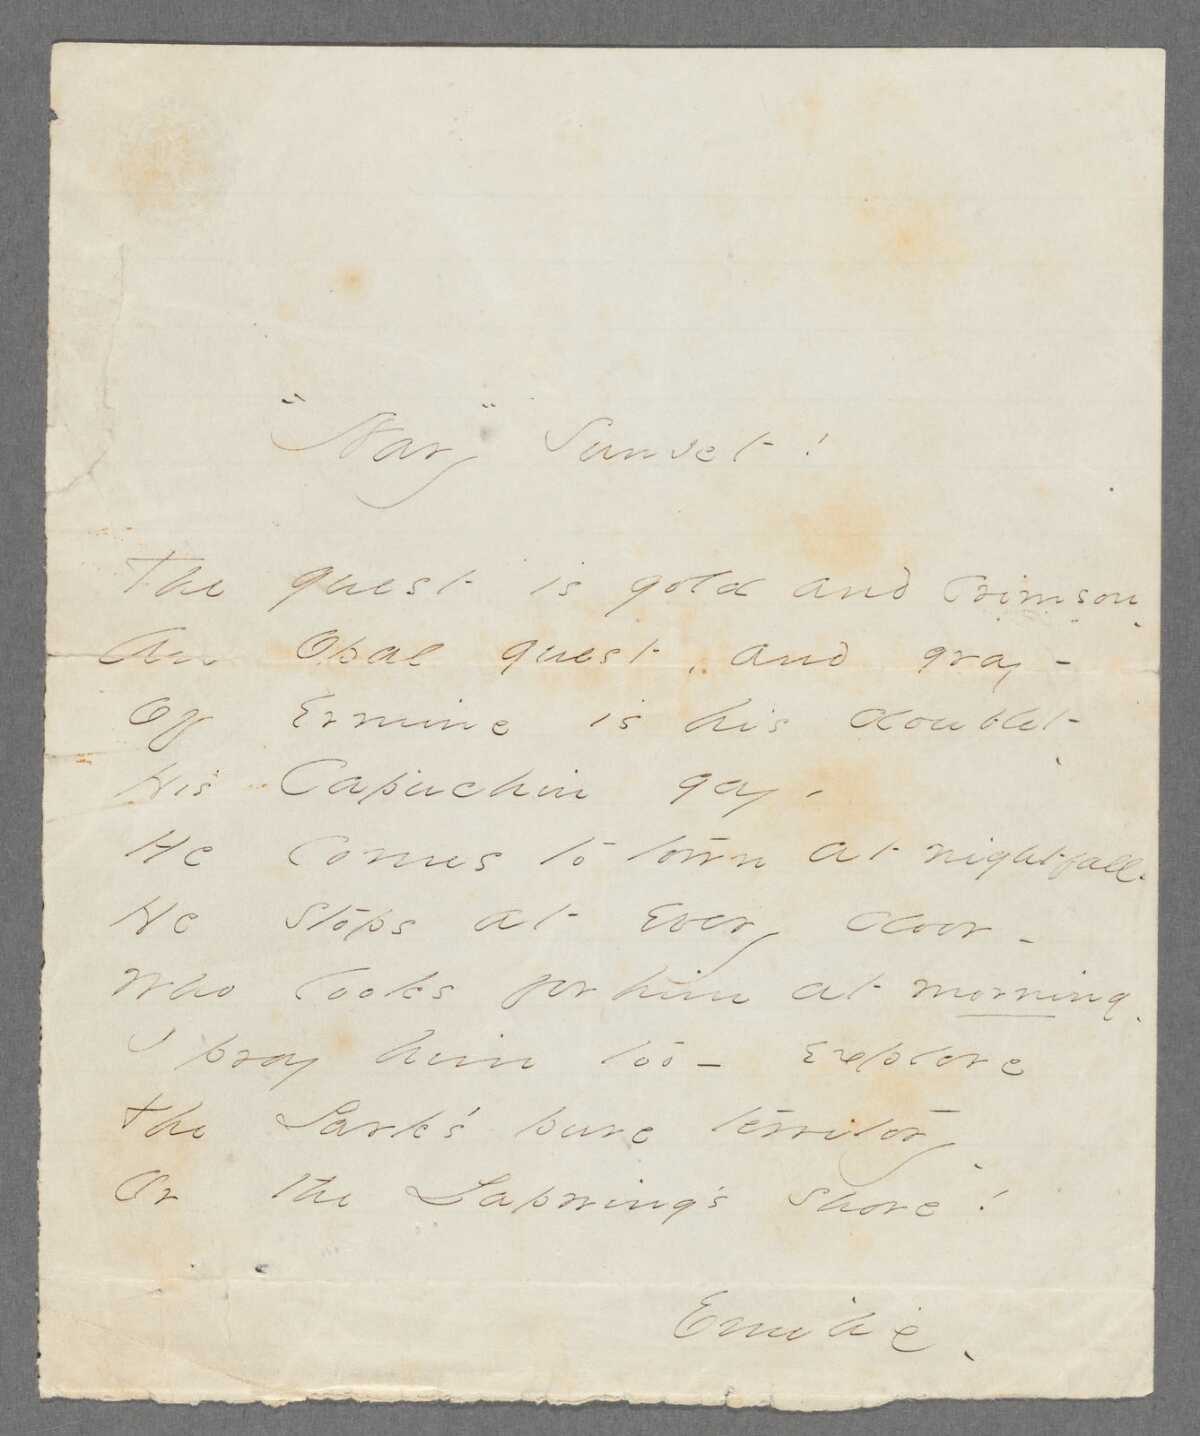 "Nary" Sunset!
The guest is gold and Crimson.
An Opal guest, and gray -
Of Ermine is his doublet -
His Capuchin gay.
He comes to town at nightfall -
He stops at every door -
Who looks for him at morning.
I pray him too - explore
The Lark's pure territory,
Or the Lapwing's shore!
Emilie.